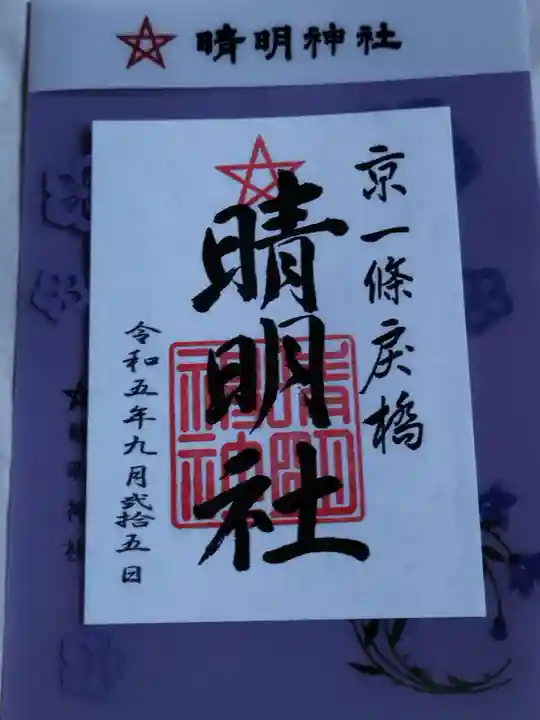 晴明神社
京一條戻橋
晴明社
晴明神社
令和五年九月弐拾五日
晴明神社